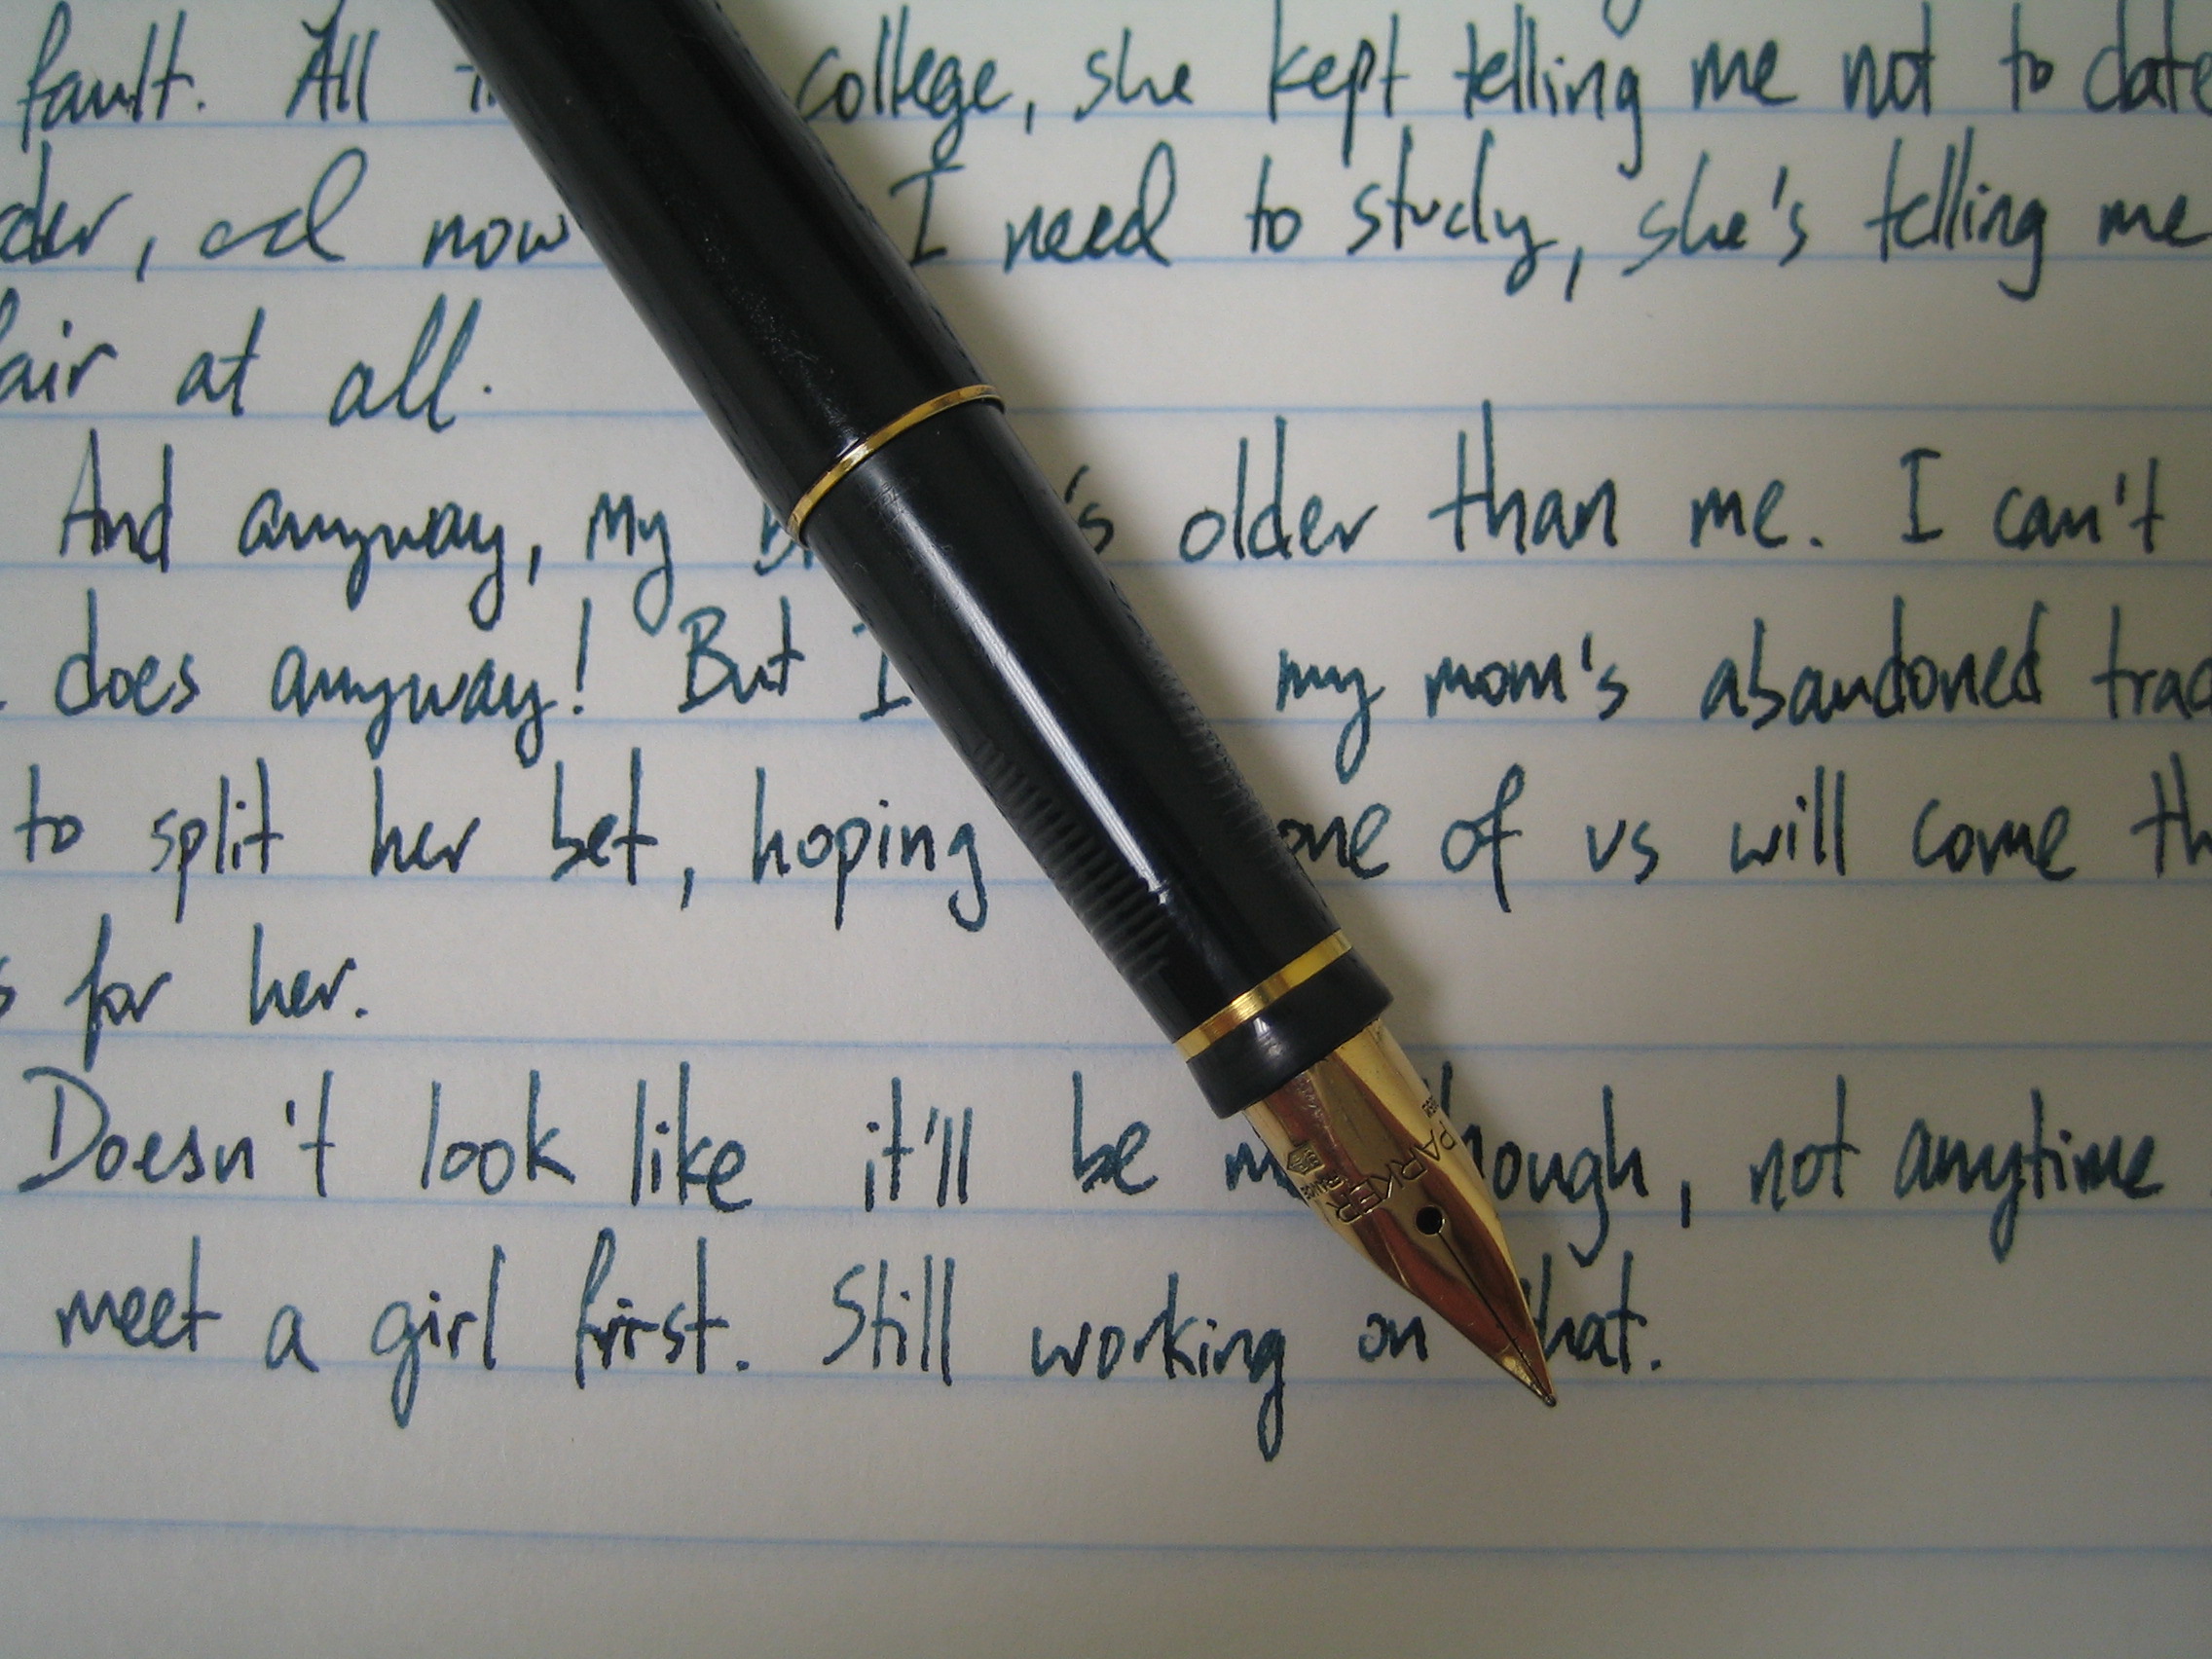 fault. All college, she kept telling me not to date
der, and now I need to study, she's telling me
fair at all.
And anyway, my 's older than me. I can't
does anyway! But I my mom's abandoned trad
to split her bet, hoping one of us will come th
s for her.
Doesn't look like it'll be m hough, not anytime
meet a girl first. Still working on that.
PARKER
FRANCE